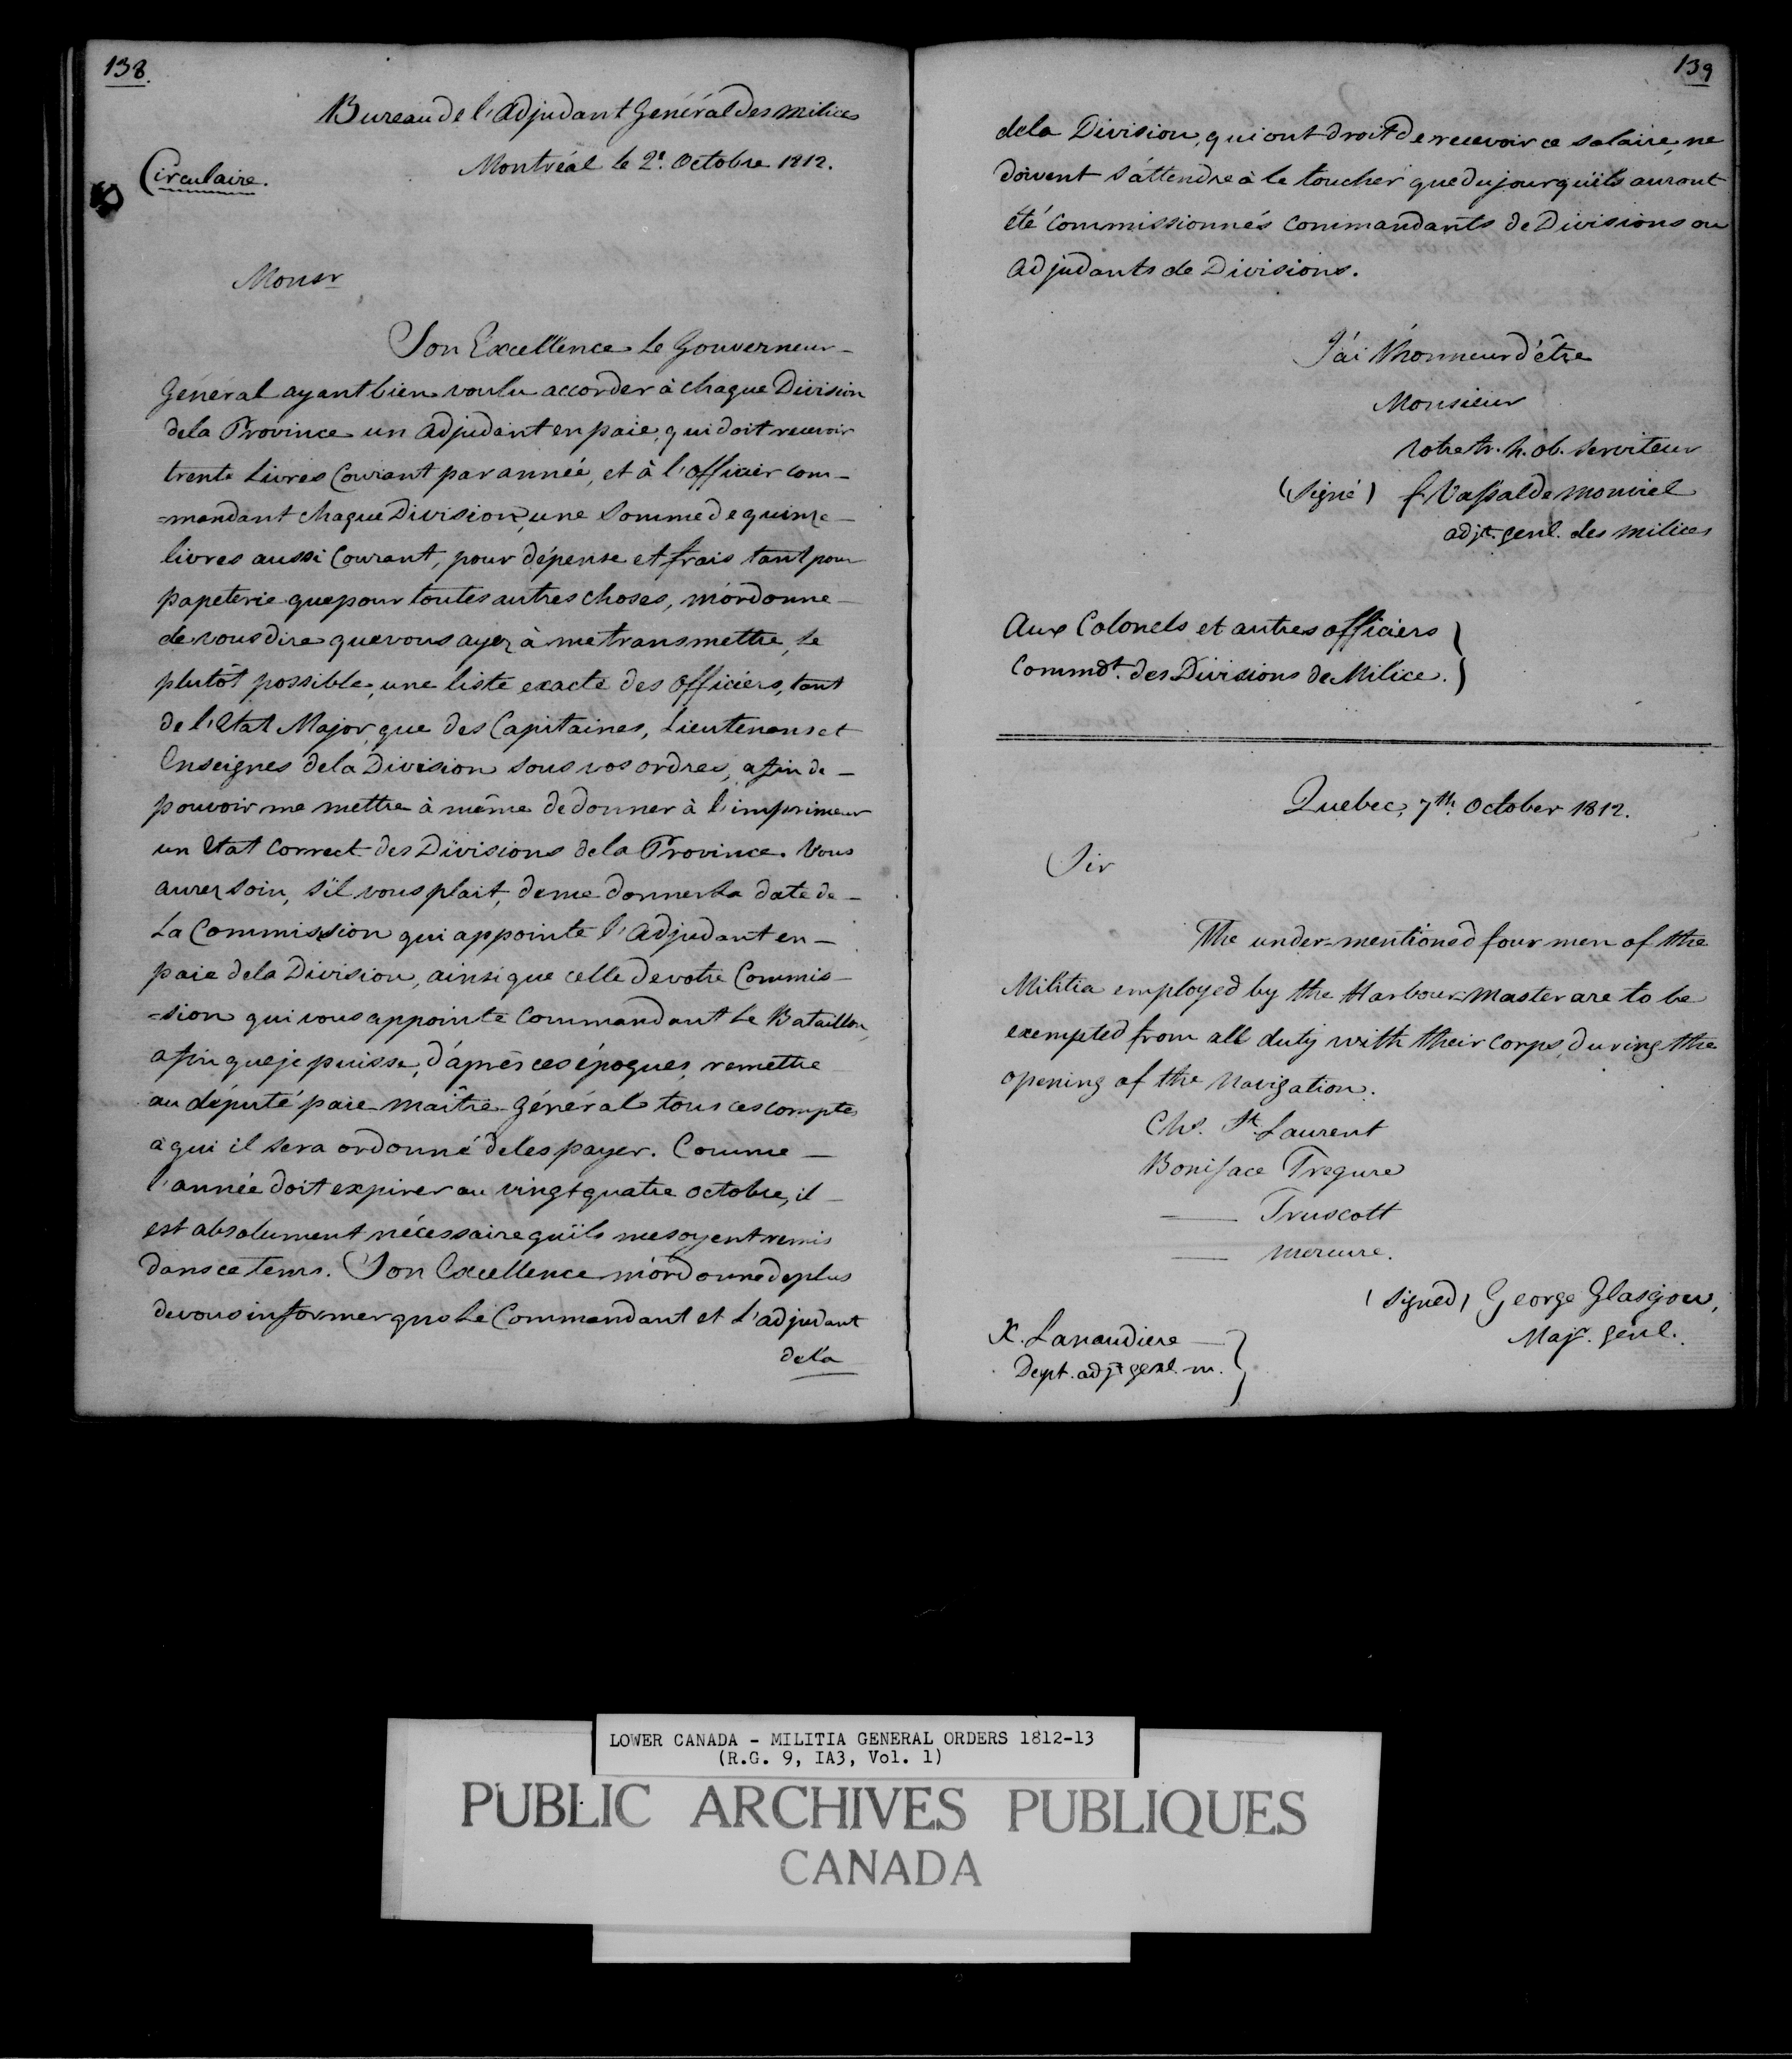 138.
Bureau de l'Adjudant Général des milices
Montréal le 2e. Octobre 1812.
Circulaire.
Monsr
Son Excellence le Gouverneur-
Général ayant bien voulu accorder à chaque Division
de la Province un Adjudant en paie, qui doit recevoir
trente Livres Courant par année, et à l'Officier com-
=mandant chaque Division, une Somme de quinze-
livres aussi Courant, pour dépense et frais tant pour
papeterie que pour toutes autres choses, m'ordonne-
de vous dire que vous ayez à me transmettre, le
plutôt possible, une liste exacte des Officiers, tant
de l'Etat Major que des Capitaines, Lieutenans et
Enseignes de la Division sous vos ordres, afin de-
pouvoir me mettre à même de donner à l'imprimeur
un Etat Correct des Divisions de la Province. Vous
aurez soin, s'il vous plait, de me donner la date de-
La Commission qui appointe l'Adjudant en-
paie de la Division, ainsi que celle de votre Commis-
=sion qui vous appointe Commandant le Bataillon,
afin que je puisse, d'après ces époques, remettre
au député paie-maître-Général tous ces comptes
à qui il sera ordonné de les payer. Comme-
l'année doit expirer au vingt quatre octobre, il-
est absolument nécessaire qu'ils me soyent remis
dans ce tems. Son Excellence m'ordonne de plus
de vous informer que le Commandant et L'adjudant
de la
139
de la Division, qui ont droit de recevoir ce salaire, ne
doivent s'attendre à le toucher que du jour qu'ils auront
été Commissionnés Commandants de Divisions ou
Adjudants de Divisions.
J'ai l'honneur d'être
Monsieur
Votre tr. h. ob. serviteur
(Signé) f Vassal de Monviel
adjt. genl. des milices
Aux Colonels et autres officiers }
Commdt. des Divisions de Milice. }
Quebec, 7th. October 1812.
Sir
The under-mentioned four men of the
Militia employed by the Harbour-Master are to be
exempted from all duty with their Corps, during the
opening of the Navigation.
Chs. St. Laurent
Boniface Tregure
—— Truscott
—— Mercure.
(Signed) George Glasgow,
Majr. Genl.
X. Lanaudiere— }
Dept. adjt genl. m. }
LOWER CANADA - MILITIA GENERAL ORDERS 1812-13
(R.G. 9, IA3, Vol. 1)
PUBLIC ARCHIVES PUBLIQUES
CANADA